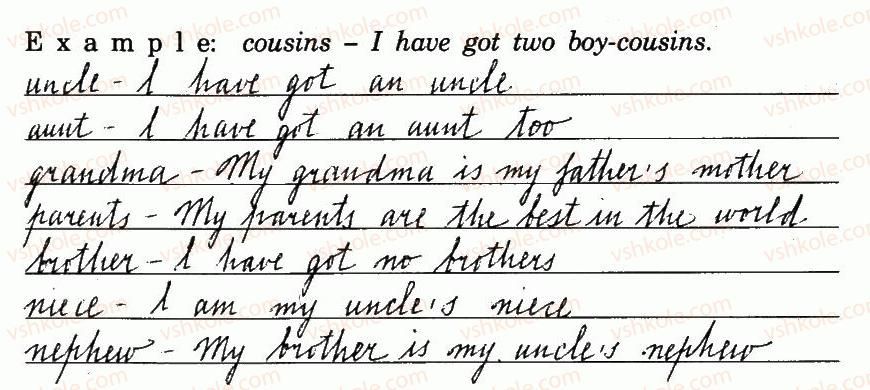 E x a m p l e: cousins – I have got two boy-cousins.
uncle - I have got an uncle
aunt - I have got an aunt too
grandma - My grandma is my father's mother
parents - My parents are the best in the world
brother - I have got no brothers
niece - I am my uncle's niece
nephew - My brother is my uncle's nephew